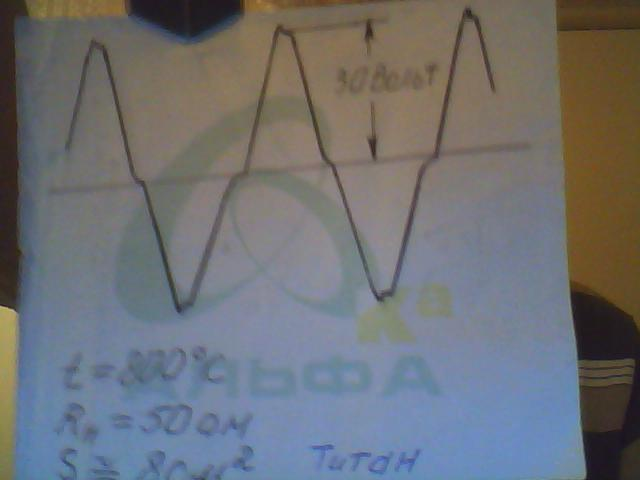 30 Вольт
Ка
АЛЬФА
t = 800°C
Rн = 50 ом
S ≅ 8см²
Титан